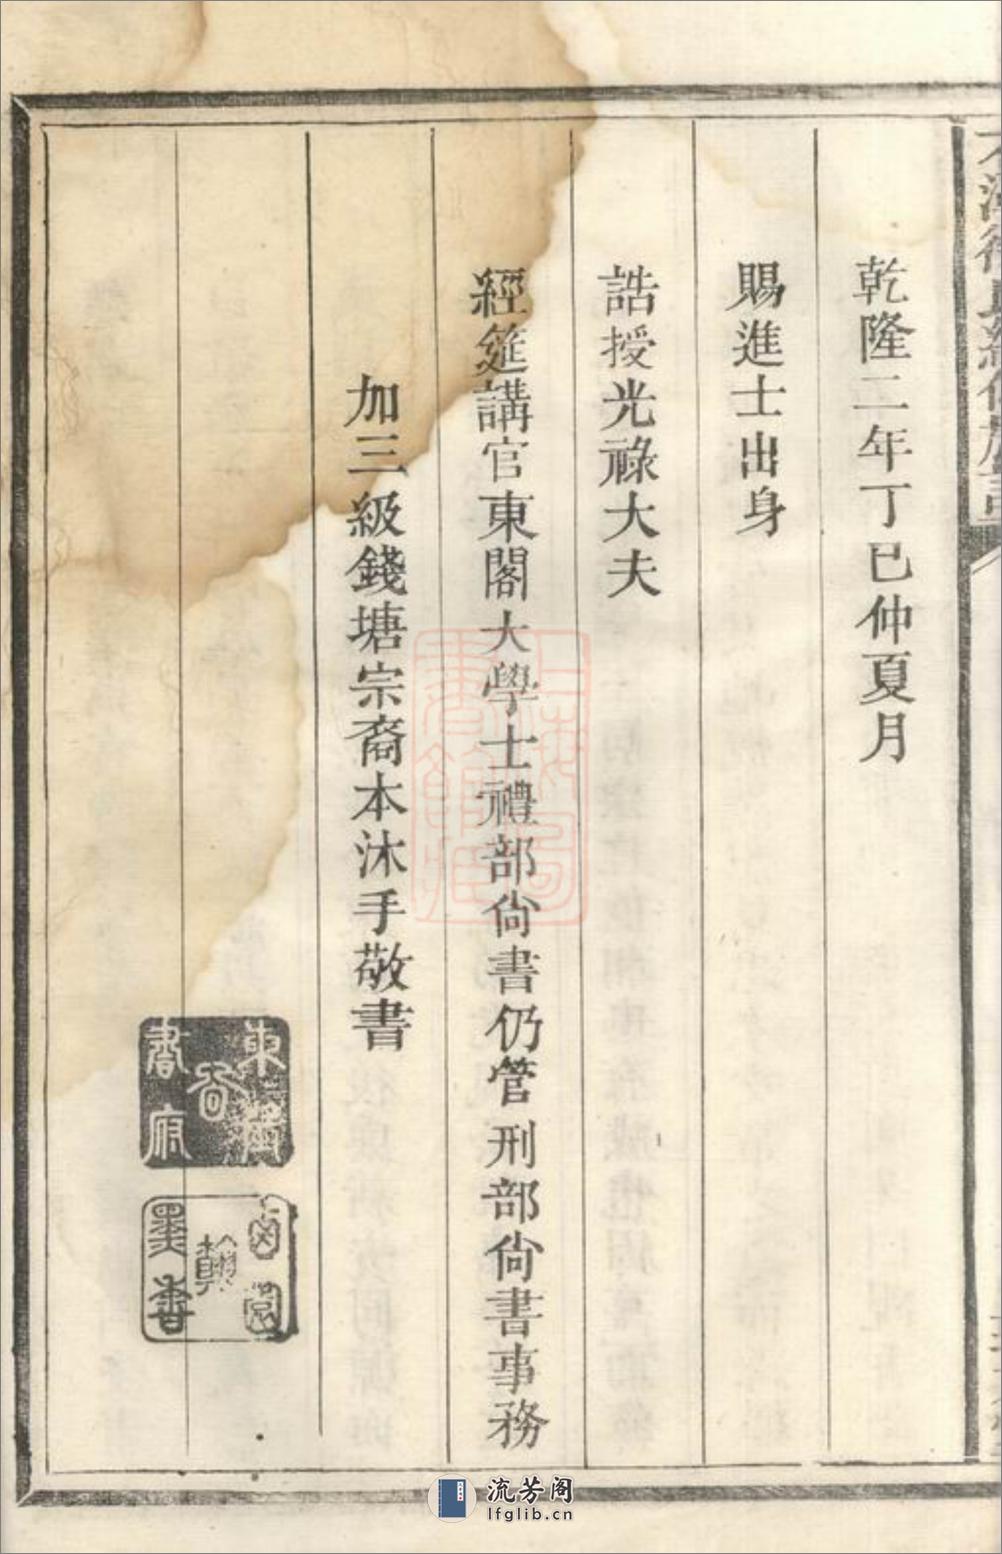 乾隆二年丁巳仲夏月
賜進士出身
誥授光祿大夫
經筵講官東閣大學士禮部尙書仍管刑部尙書事務
加三級錢塘宗裔本沐手敬書
上海圖書館藏
流芳阁
lfglib.cn